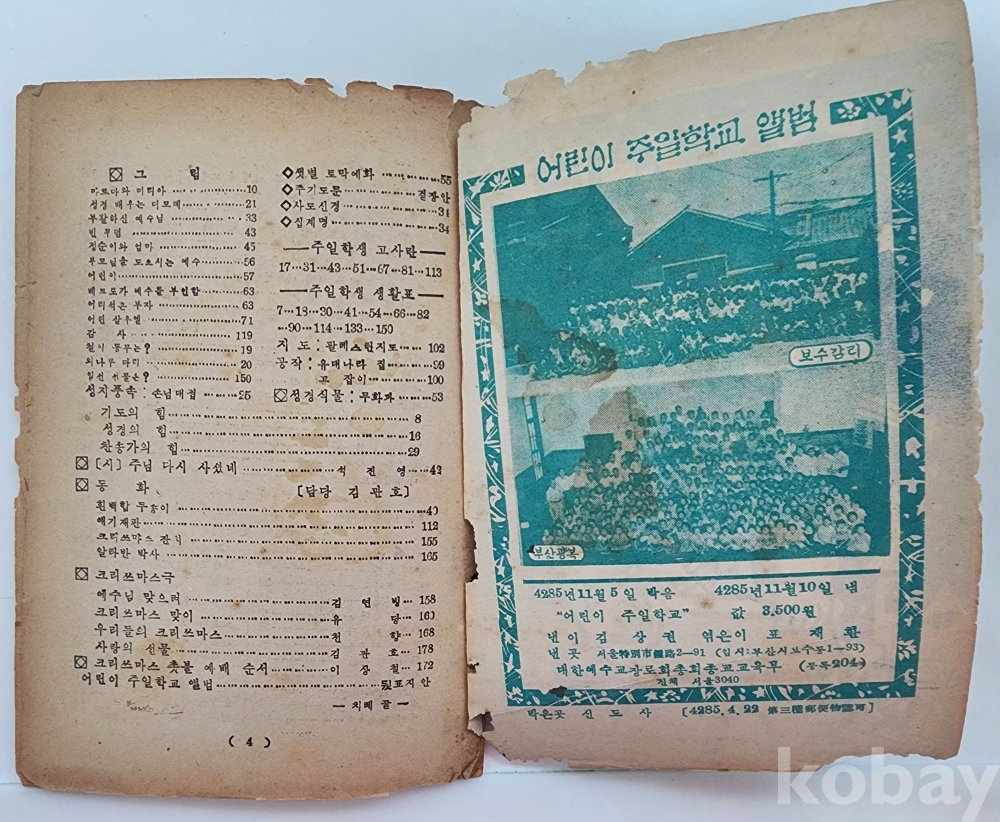 그 림
마르다와 마리아 10
성경 배우는 디모데 21
부활하신 예수님 33
빈 무덤 43
정순이와 엄마 45
부모님을 모르시는 예수 56
어린이 57
베드로가 예수를 부인함 63
어리석은 부자 63
어린 삼우엘 71
감 사 119
철이 동무는? 19
외나무 다리 20
일선 선물은? 150
성지풍속: 손님대접 25
기도의 힘 8
성경의 힘 16
찬송가의 힘 29
◇햇볕 토막예화 55
◇주기도문 겉장안
◇사도신경 34
◇십계명 34
주일학생 고사란
17…31…43…51…67…81…113
주일학생 생활표
7…18…30…41…54…66…82
…90…114…133…150
지 도: 팔레스틴지도 102
공작: 유대나라 집 99
곤 잡이 100
성경식물: 무화과 53
[시] 주님 다시 사셨네 석 진 영 42
동 화 [담당 김 관 호]
흰백합 두송이 40
애기재판 112
크리쓰마스 잔치 155
알타반 박사 165
크리쓰마스극
예수님 맞으러 김 연 158
크리쓰마스 맞이 유 당
우리들의 크리쓰마스 천 향 168
사랑의 선물 김 관 호 178
크리쓰마스 촛불 예배 순서 이 상 철 172
어린이 주일학교 앨범 뒷표지 안
— 치례 끝 —
( 4 )
어린이 주일학교 앨범
보수감리
부산광복
4285년11월5일 박음 4285년11월10일 냄
"어린이 주일학교" 값 3.500원
낸이 김 상 권 엮은이 표 재 환
낸 곳 서울特別市鍾路2—91 (임시:부산시보수동1—93)
대한예수교장로회총회종교교육부 (등록204)
진체 서울3040
박은곳 신 도 사 [4285.4.22 第三種郵便物認可]
kobay